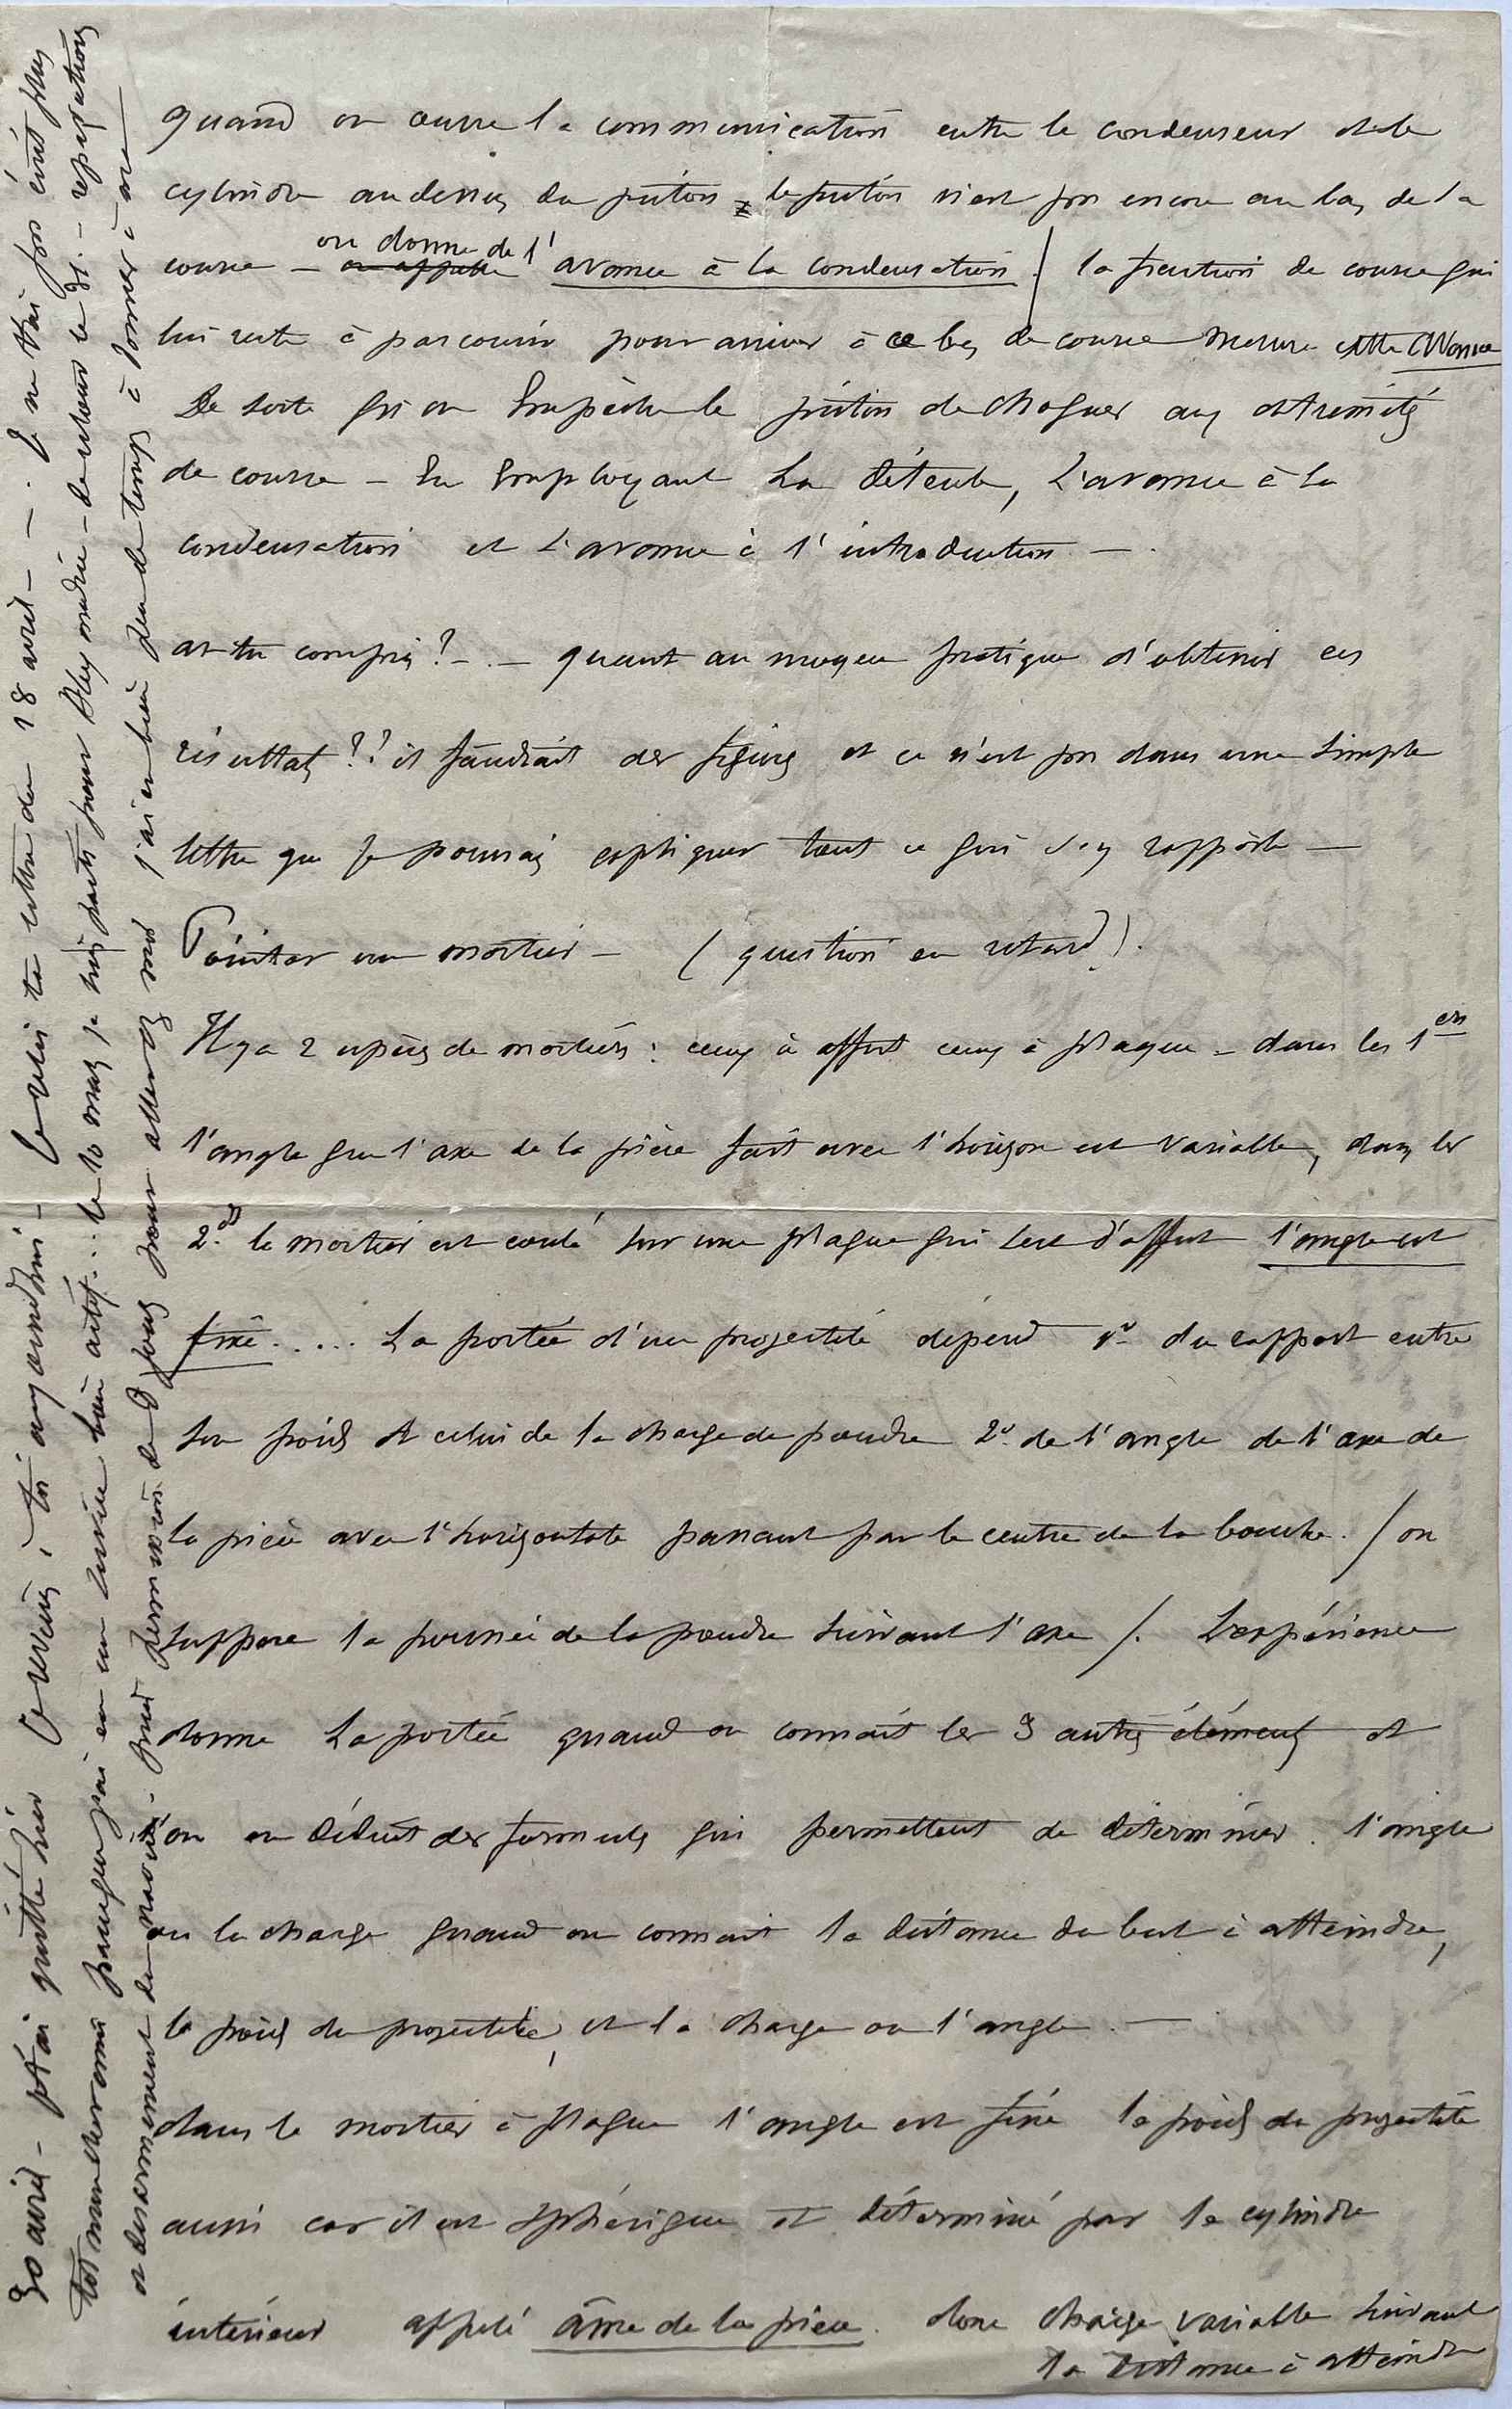 quand on ouvre la communication entre le condenseur et le
cylindre au dessus du piston, le piston n'est pas encore au bas de la
course — on donne de l' avance à la condensation / la fraction de course qui
lui reste à parcourir pour arriver à ce bas de course mesure cette avance
De sorte qu'on empêche le piston de choquer aux extrémités
de course — En employant La détente, L'avance à la
condensation et L'avance à l'introduction — .
as-tu compris ? — . — quant au moyen pratique d'obtenir ces
résultats ?? il faudrait des figures et ce n'est pas dans une simple
lettre que je pourrais expliquer tout ce qui s'y rapporte —
Pointer un mortier — ( question en retard ).
Il y a 2 espèces de mortiers : ceux à affut ceux à plaque — dans les 1ers
l'angle que l'axe de la pièce fait avec l'horizon est variable, dans les
2ds le mortier est coulé sur une plaque qui sert d'affut l'angle est
fixe ..... La portée d'un projectile dépend 1o du rapport entre
son poids et celui de la charge de poudre 2o de l'angle de l'axe de
la pièce avec l'horizontale passant par le centre de la bouche. / on
suppose la poussée de la poudre suivant l'axe /. L'expérience
donne La portée quand on connait les 3 autres éléments et
on en déduit des formules qui permettent de déterminer l'angle
ou la charge quand on connait la distance du but à atteindre,
le poids du projectile, et la charge ou l'angle. —
dans le mortier à plaque l'angle est fixé le poids du projectile
aussi car il est sphérique et déterminé par le cylindre
intérieur appelé âme de la pièce. donc charge variable suivant
la distance à atteindre
30 avril — t'ai quitté hier Je reviens à toi aujourd'hui — Je relis ta lettre du 18 avril — . Je ne t'ai pas écrit plus
tot mon cher ami parceque j'ai eu un service bien actif... le 10 mars je suis parti pour — de retour le 31. — réparations
et désarmement du navire — puis permission de 8 jours pour aller j'ai eu bien peu de temps à donner à